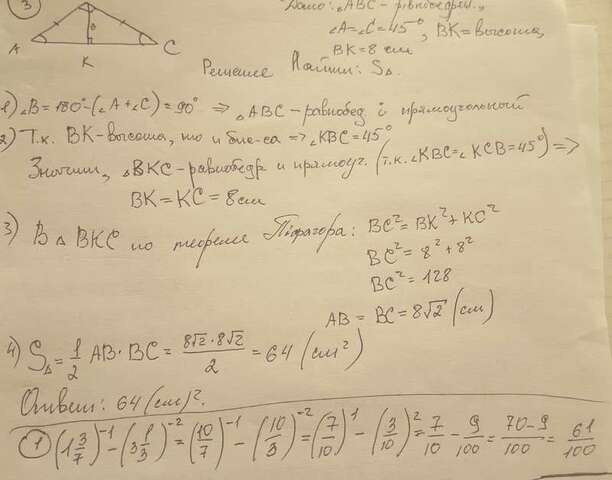 3) Дано: △ABC - равнобедрен.,
∠A=∠C=45°, BK=высота,
BK=8 см
A K C
Решение Найти: S△.
1) ∠B=180°-(∠A+∠C)=90° ⇒ △ABC-равнобед. і прямоугольный
2) Т.к. BK-высота, то и бис-са ⇒ ∠KBC=45°
Значит, △BKC-равнобедр и прямоуг. (т.к. ∠KBC=∠KCB=45°) ⇒
BK=KC=8см
3) В △ BKC по теореме Піфагора: BC²=BK²+KC²
BC²=8²+8²
BC²=128
AB=BC=8√2 (см)
4) S△=1/2 AB·BC=(8√2·8√2)/2=64 (см²)
Ответ: 64 (см)².
1 (1 3/7)⁻¹-(3 1/3)⁻²=(10/7)⁻¹-(10/3)⁻²=(7/10)¹-(3/10)²=7/10-9/100=(70-9)/100=61/100